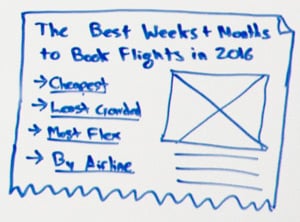 The Best Weeks + Months
to Book Flights in 2016
→ Cheapest
→ Least Crowded
→ Most Flex
→ By Airline